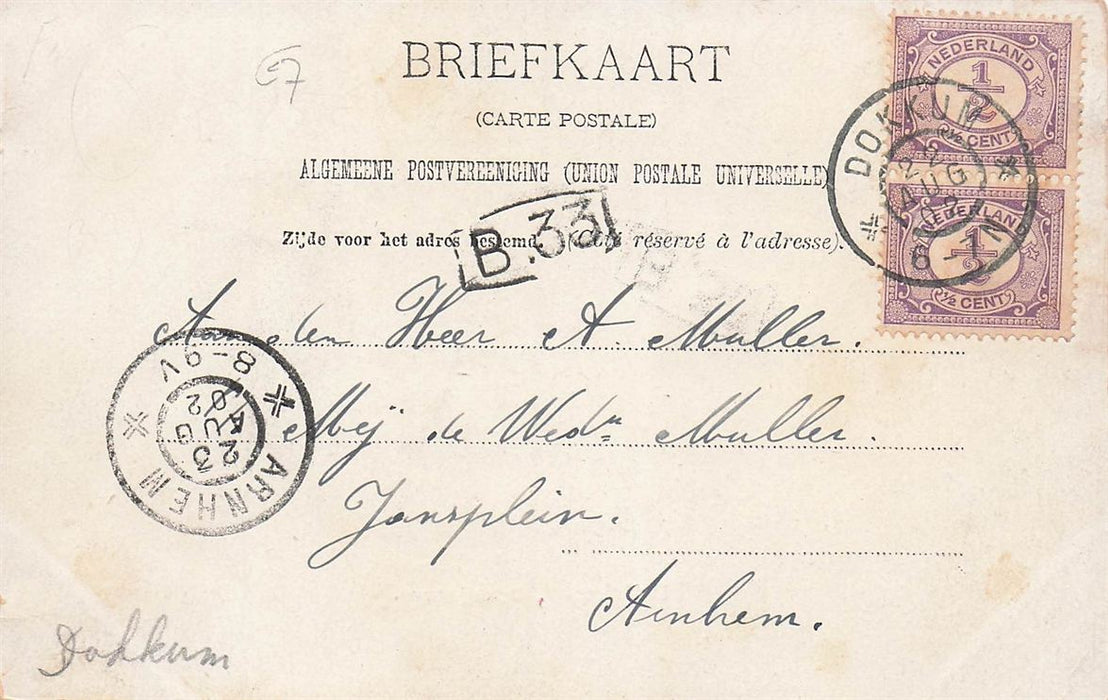 67
BRIEFKAART
(CARTE POSTALE)
ALGEMEENE POSTVEREENIGING (UNION POSTALE UNIVERSELLE)
Zijde voor het adres bestemd. (Côté réservé à l'adresse).
B.33
NEDERLAND
½
½ CENT
NEDERLAND
½
½ CENT
DOKKUM
AUG
02
6-7N
Aan den Heer A. Muller.
Mej de Wedn Muller.
Jansplein.
Arnhem.
ARNHEM
23
AUG
02
8-9V
Dokkum